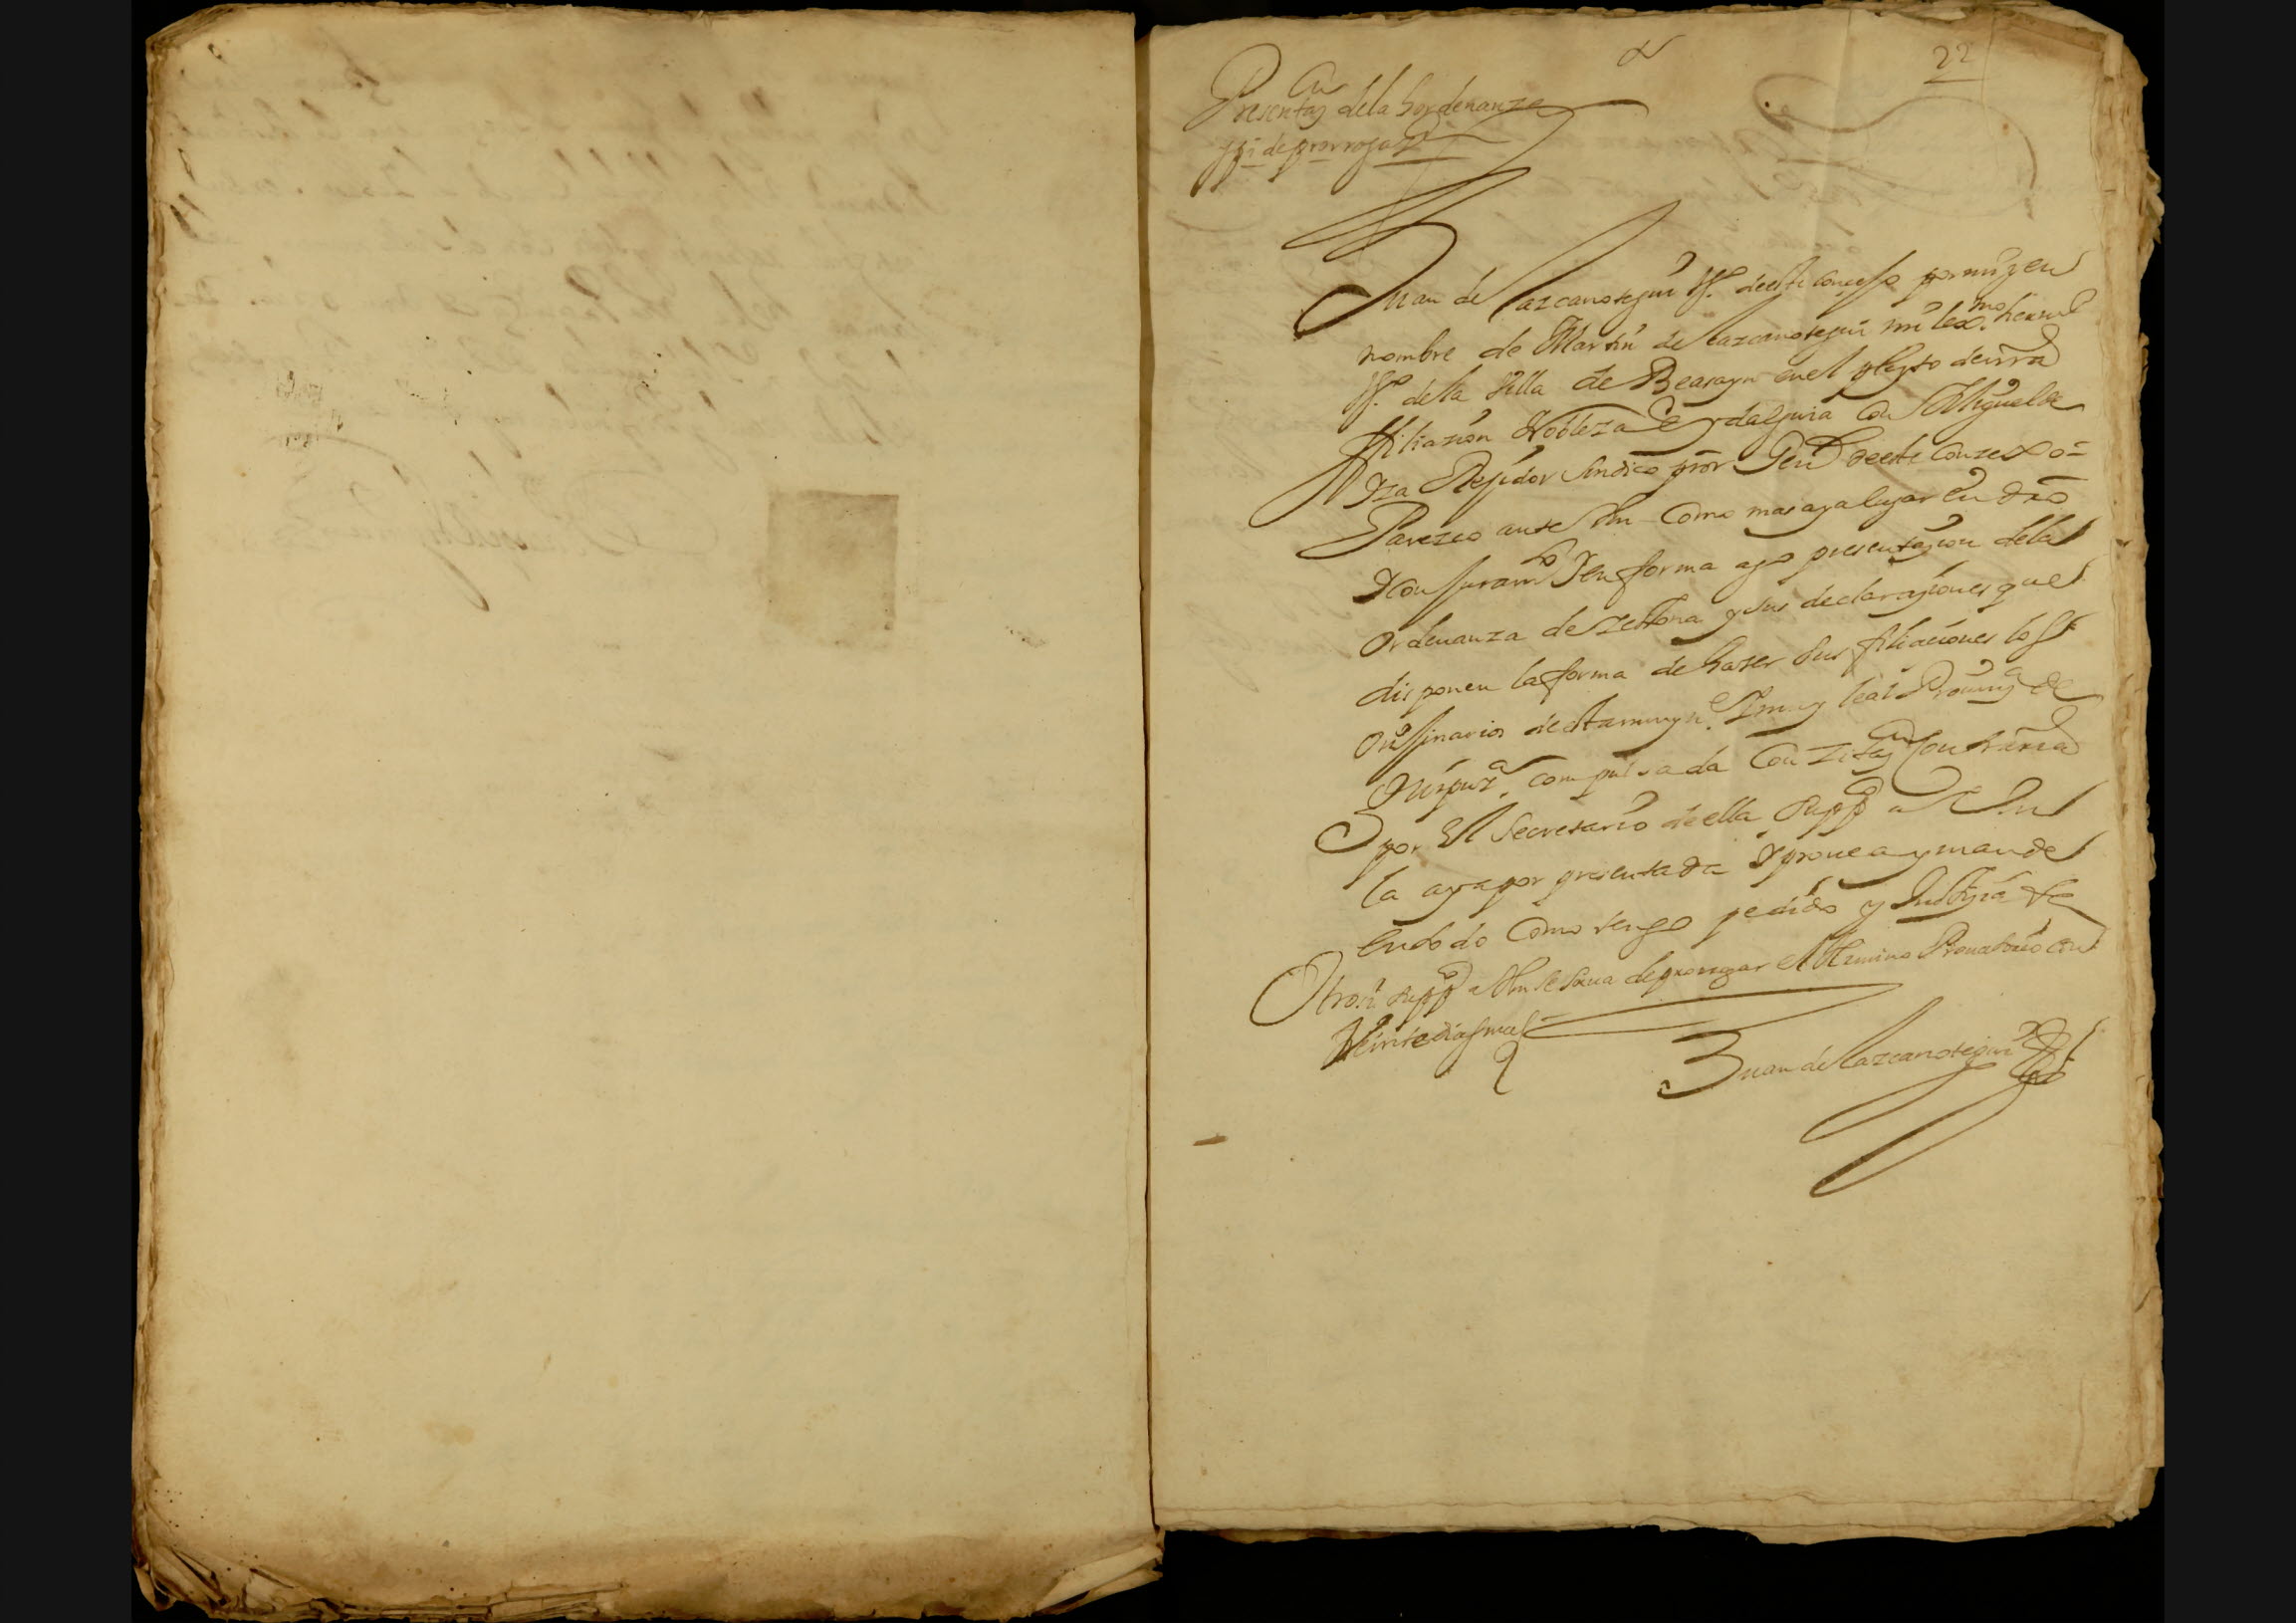 22
Presentaon dela hordenanza
ppi de prorrogaon
Juan de Lazcanotegui Vº. deeste conçejo por mi y en
nombre de Martin de Lazcanotegui mi lexmo. herno
Vº. de la Villa de Beasayn en el pleyto de nrra
ffiliazion Nobleza e ydalguia con Miguel de
Yza Rejidor sindico pror Genl deeste Conzexo =
Parezco ante Vm Como mas aya lugar en dro
Y con juramto Yen forma ago presentaçion dela
Ordenanza de Zestona y sus declaraçiones que
disponen la forma de hazer sus filiaciones los
Orijinarios de esta muy N. Y muy leal Prouinça de
Guipuza. compulsada Con Zitaon Contraria
por El Secretario de ella suppco a Vm
la aya por presentada Y prouea y mande
en todo Como tengo pedido y Justiçia &
Otrosi suppco a Vm se sirua de prorrogar el termino Prouatorio con
Veinte dias mas =
Juan de Lazcanotegui